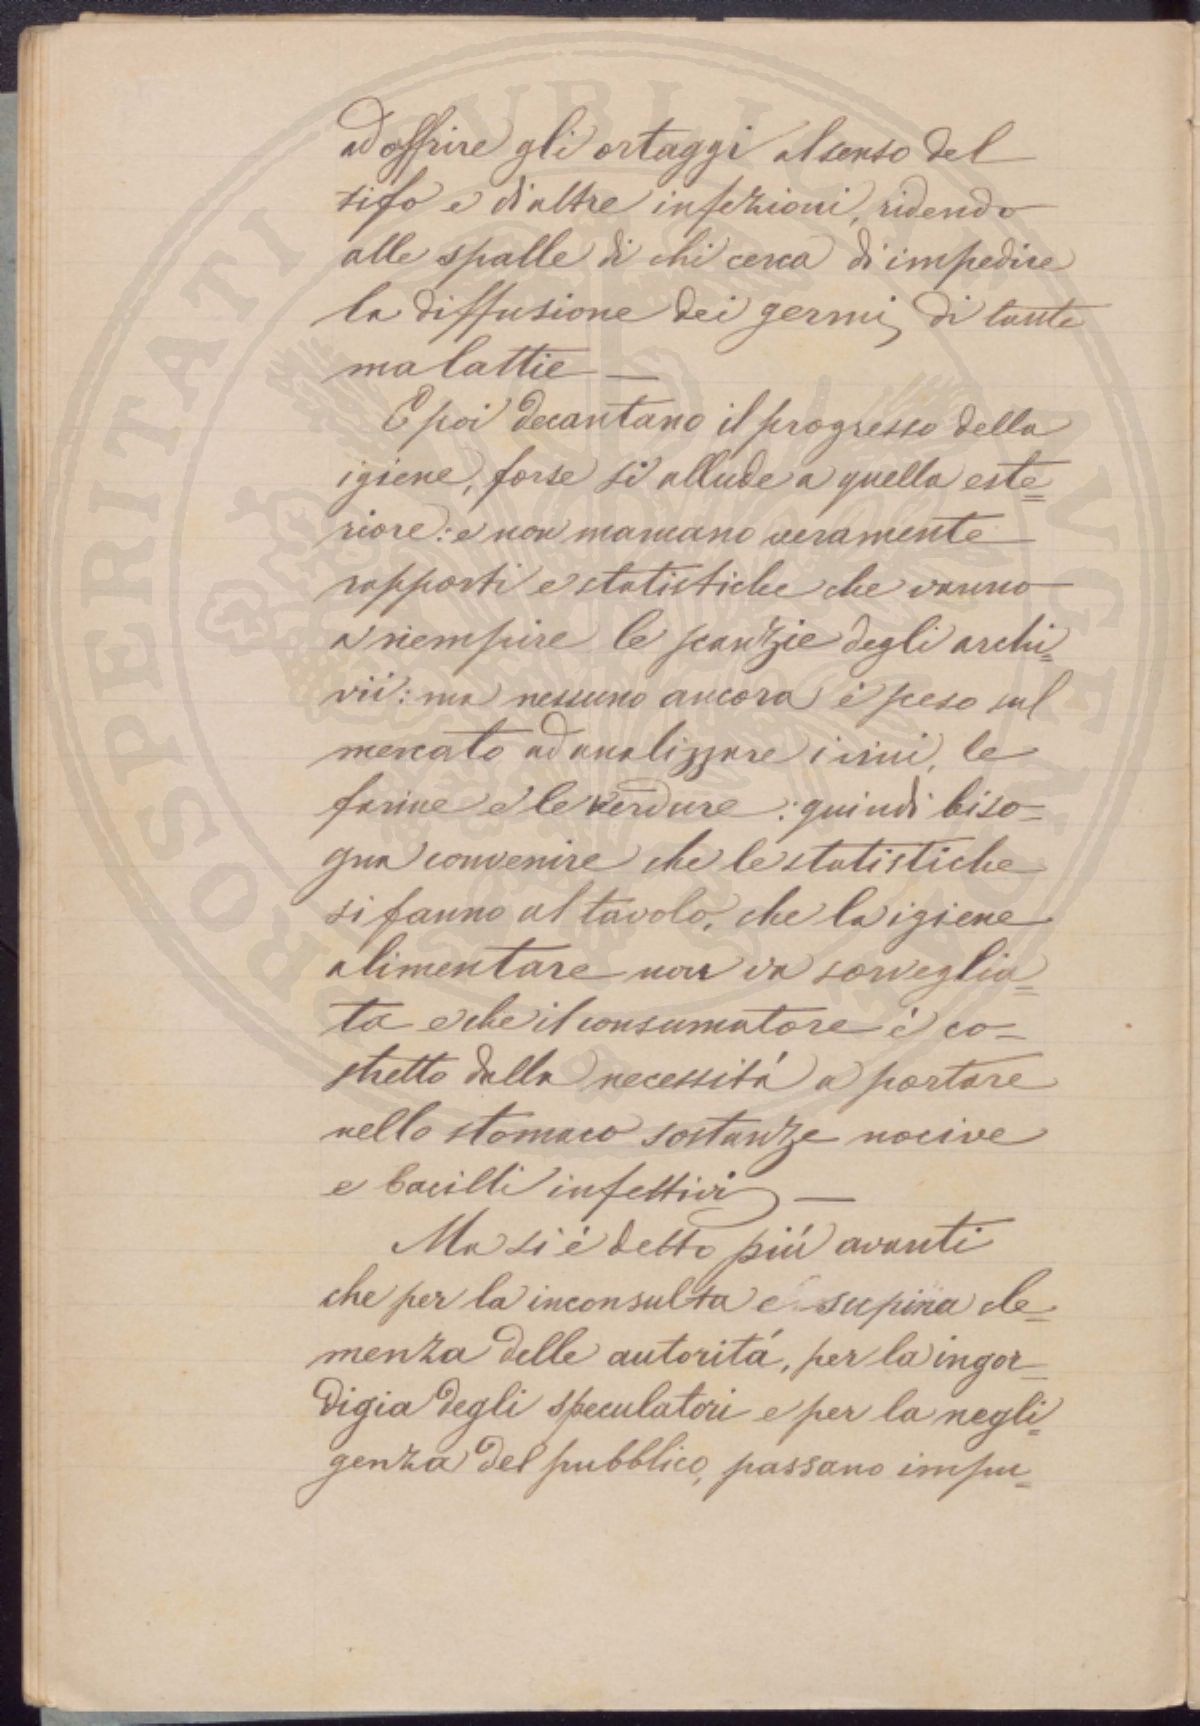 ad offrire gli ortaggi al senso del
tifo e di altre infezioni, ridendo
alle spalle di chi cerca di impedire
la diffusione dei germi, di tante
malattie —
E poi decantano il progresso della
igiene, forse si allude a quella este=
riore: e non mancano veramente
rapporti e statistiche che vanno
a riempire le scanzie degli archi=
vii: ma nessuno ancora è sceso sul
mercato ad analizzare i vini, le
farine e le verdure: quindi biso=
gna convenire che le statistiche
si fanno al tavolo, che la igiene
alimentare non va sorveglia=
ta e che il consumatore è co=
stretto dalla necessitá a portare
nello stomaco sostanze nocive
e bacilli infettivi —
Ma si è detto piú avanti
che per la inconsulta e supina cle=
menza delle autoritá, per la ingor=
digia degli speculatori e per la negli=
genza del pubblico, passano impu=
PROSPERITATI PUBLICAE AUGENDAE